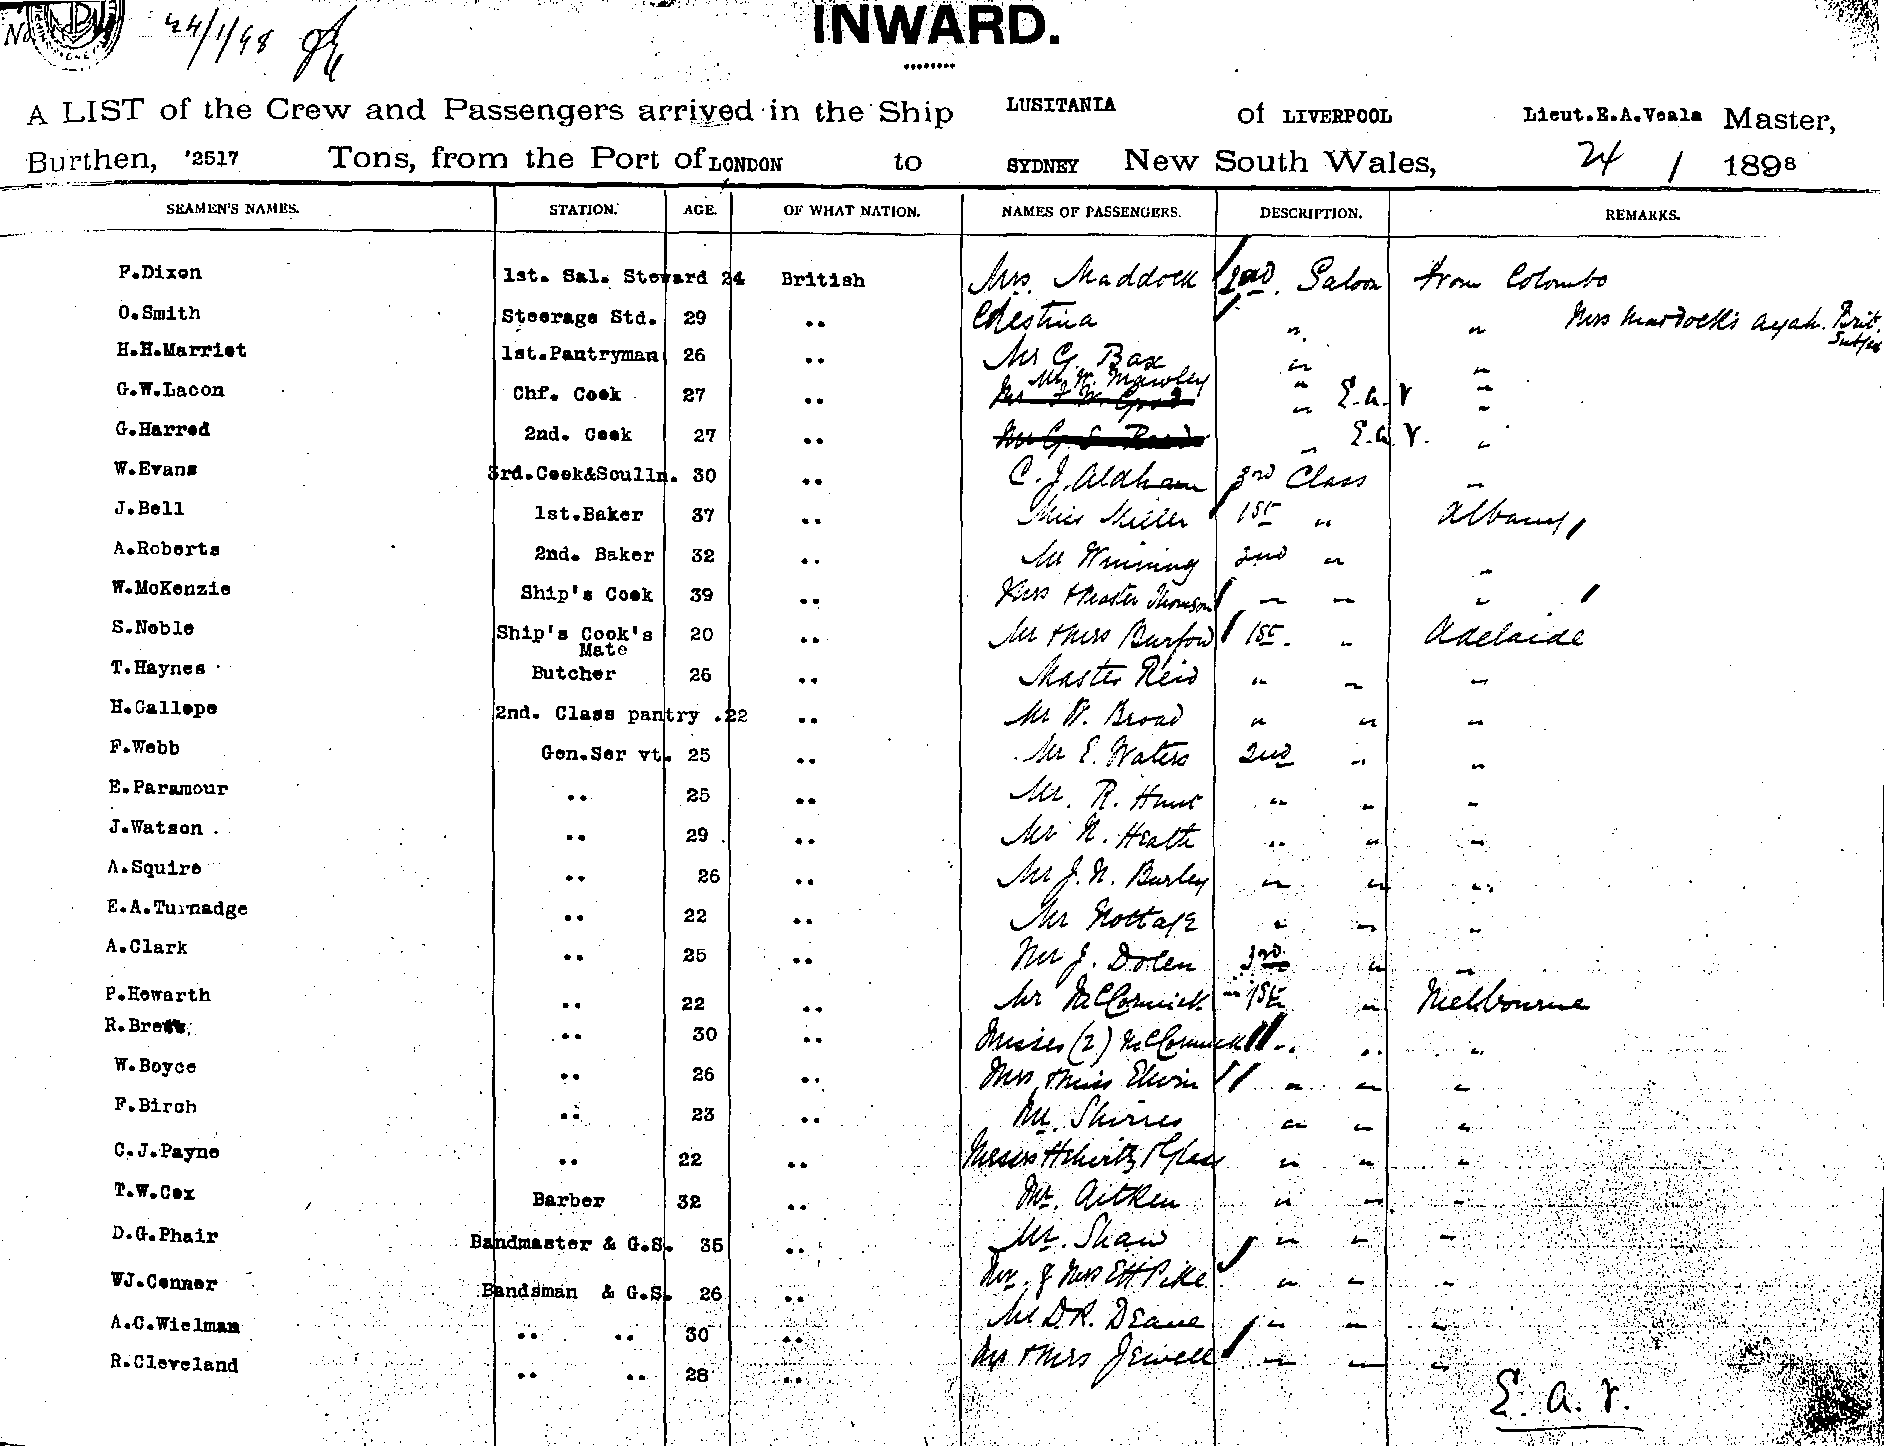 No
24/1/98
INWARD.
A LIST of the Crew and Passengers arrived in the Ship LUSITANIA of LIVERPOOL Lieut.E.A.Veale Master,
Burthen, 2517 Tons, from the Port of LONDON to SYDNEY New South Wales, 24 / 1898
SEAMEN'S NAMES. STATION. AGE. OF WHAT NATION. NAMES OF PASSENGERS. DESCRIPTION. REMARKS.
F.Dixon 1st. Sal. Steward 24 British Mrs. Maddock 2nd. Saloon from Colombo
O.Smith Steerage Std. 29 .. Celestina " " Mrs Maddock's ayah. Brit. Subject
H.H.Marriet 1st.Pantryman 26 .. Mr G. Bax " "
Mr W. Mawley " "
G.W.Lacon Chf. Cook 27 .. " E.A.V "
G.Harred 2nd. Cook 27 .. " E.A.V. "
W.Evans 3rd.Cook&Sculln. 30 .. C. J. Aldham 3rd Class "
J.Bell 1st.Baker 37 .. Miss Miller 1st " Albany
A.Roberts 2nd. Baker 32 .. Mr Winning 2nd " "
W.McKenzie Ship's Cook 39 .. Mrs & Master Thomson " " "
S.Noble Ship's Cook's Mate 20 .. Mr & Mrs Burford 1st. " Adelaide
T.Haynes Butcher 26 .. Master Reid " " "
H.Gallepe 2nd. Class pantry .22 .. Mr W. Broad " " "
F.Webb Gen.Ser vt. 25 .. Mr E. Waters 2nd " "
E.Paramour .. 25 .. Mr. R. Hunt " " "
J.Watson .. 29 .. Mr N. Heath " " "
A.Squire .. 26 .. Mr J. N. Burley " " "
E.A.Turnadge .. 22 .. Mr Nottage " " "
A.Clark .. 25 .. Mr J. Dolen 3rd " "
P.Howarth .. 22 .. Mr McCormick 1st " Melbourne
R.Brett .. 30 .. Misses (2) McCormick " " "
W.Boyce .. 26 .. Mrs & Miss Elvin " " "
F.Birch .. 23 .. Mr. Shirres " " "
C.J.Payne .. 22 .. Messrs & Glass " " "
T.W.Cox Barber 32 .. Mr. Aitken " " "
D.G.Phair Bandmaster & G.S. 35 .. Mr. Shaw " " "
WJ.Conner Bandsman & G.S. 26 .. Mr. & Mrs EH Pike " " "
A.C.Wielman .. .. 30 .. Mr D.R. Deane " " "
R.Cleveland .. .. 28 .. Mr & Mrs Jewell " " "
E.A.V.